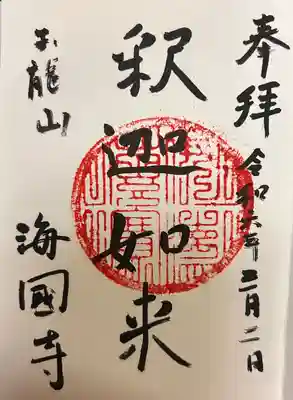 奉拝 令和六年二月二日
釈迦如来
玉龍山 海國寺